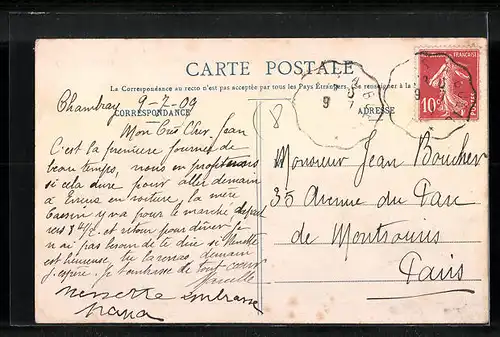 CARTE POSTALE
La Correspondance au recto n'est pas acceptée par tous les Pays Étrangers. (Se renseigner à la
CORRESPONDANCE
ADRESSE
FRANÇAISE
10c
8
Chambray 9-7-09
Mon Cris Cher Jean
C'est la première journée de
beau temps, nous en profitons
si cela dure pour aller demain
à Evreux en voiture, la mère
y va pour le marché départ
vers et retour pour dîner. Je
n'ai pas besoin de te dire si Ninette
est heureuse, tu la verras, demain
j'espère. Je t'embrasse de tout cœur
Ninette embrasse
Nana
Monsieur Jean Boucher
35 Avenue du Parc
de Montsouris
Paris